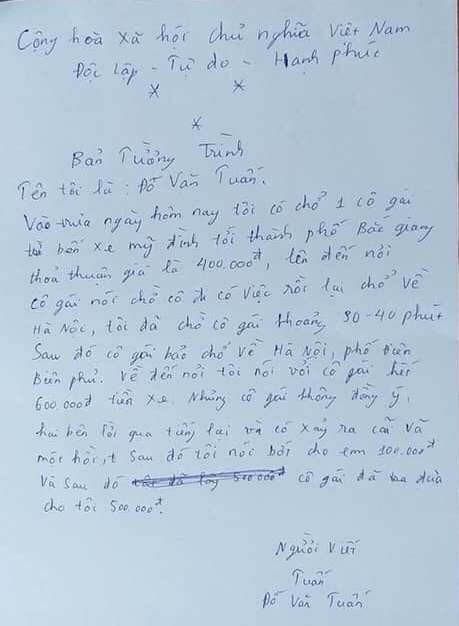 Cộng hoà xã hội chủ nghĩa Việt Nam
Độc lập - Tự do - Hạnh phúc
* *
*
Bản Tường Trình
Tên tôi là : Đỗ Văn Tuấn.
Vào trưa ngày hôm nay tôi có chở 1 cô gái
từ bến xe mỹ đình tới thành phố Bắc giang
thoả thuận giá là 400.000đ, lên đến nơi
cô gái nói chờ cô đi có việc rồi lại chở về
Hà Nội, tôi đã chờ cô gái khoảng 30-40 phút
Sau đó cô gái bảo chở về Hà Nội, phố Điện
Biên phủ. Về đến nơi tôi nói với cô gái hết
600.000đ tiền xe. Nhưng cô gái không đồng ý,
hai bên lời qua tiếng lại và có xảy ra cãi vã
một hồi, Sau đó tôi nói bớt cho em 100.000đ
Và sau đó cô gái đã đưa
cho tôi 500.000đ.
Người Viết
Tuấn
Đỗ Văn Tuấn